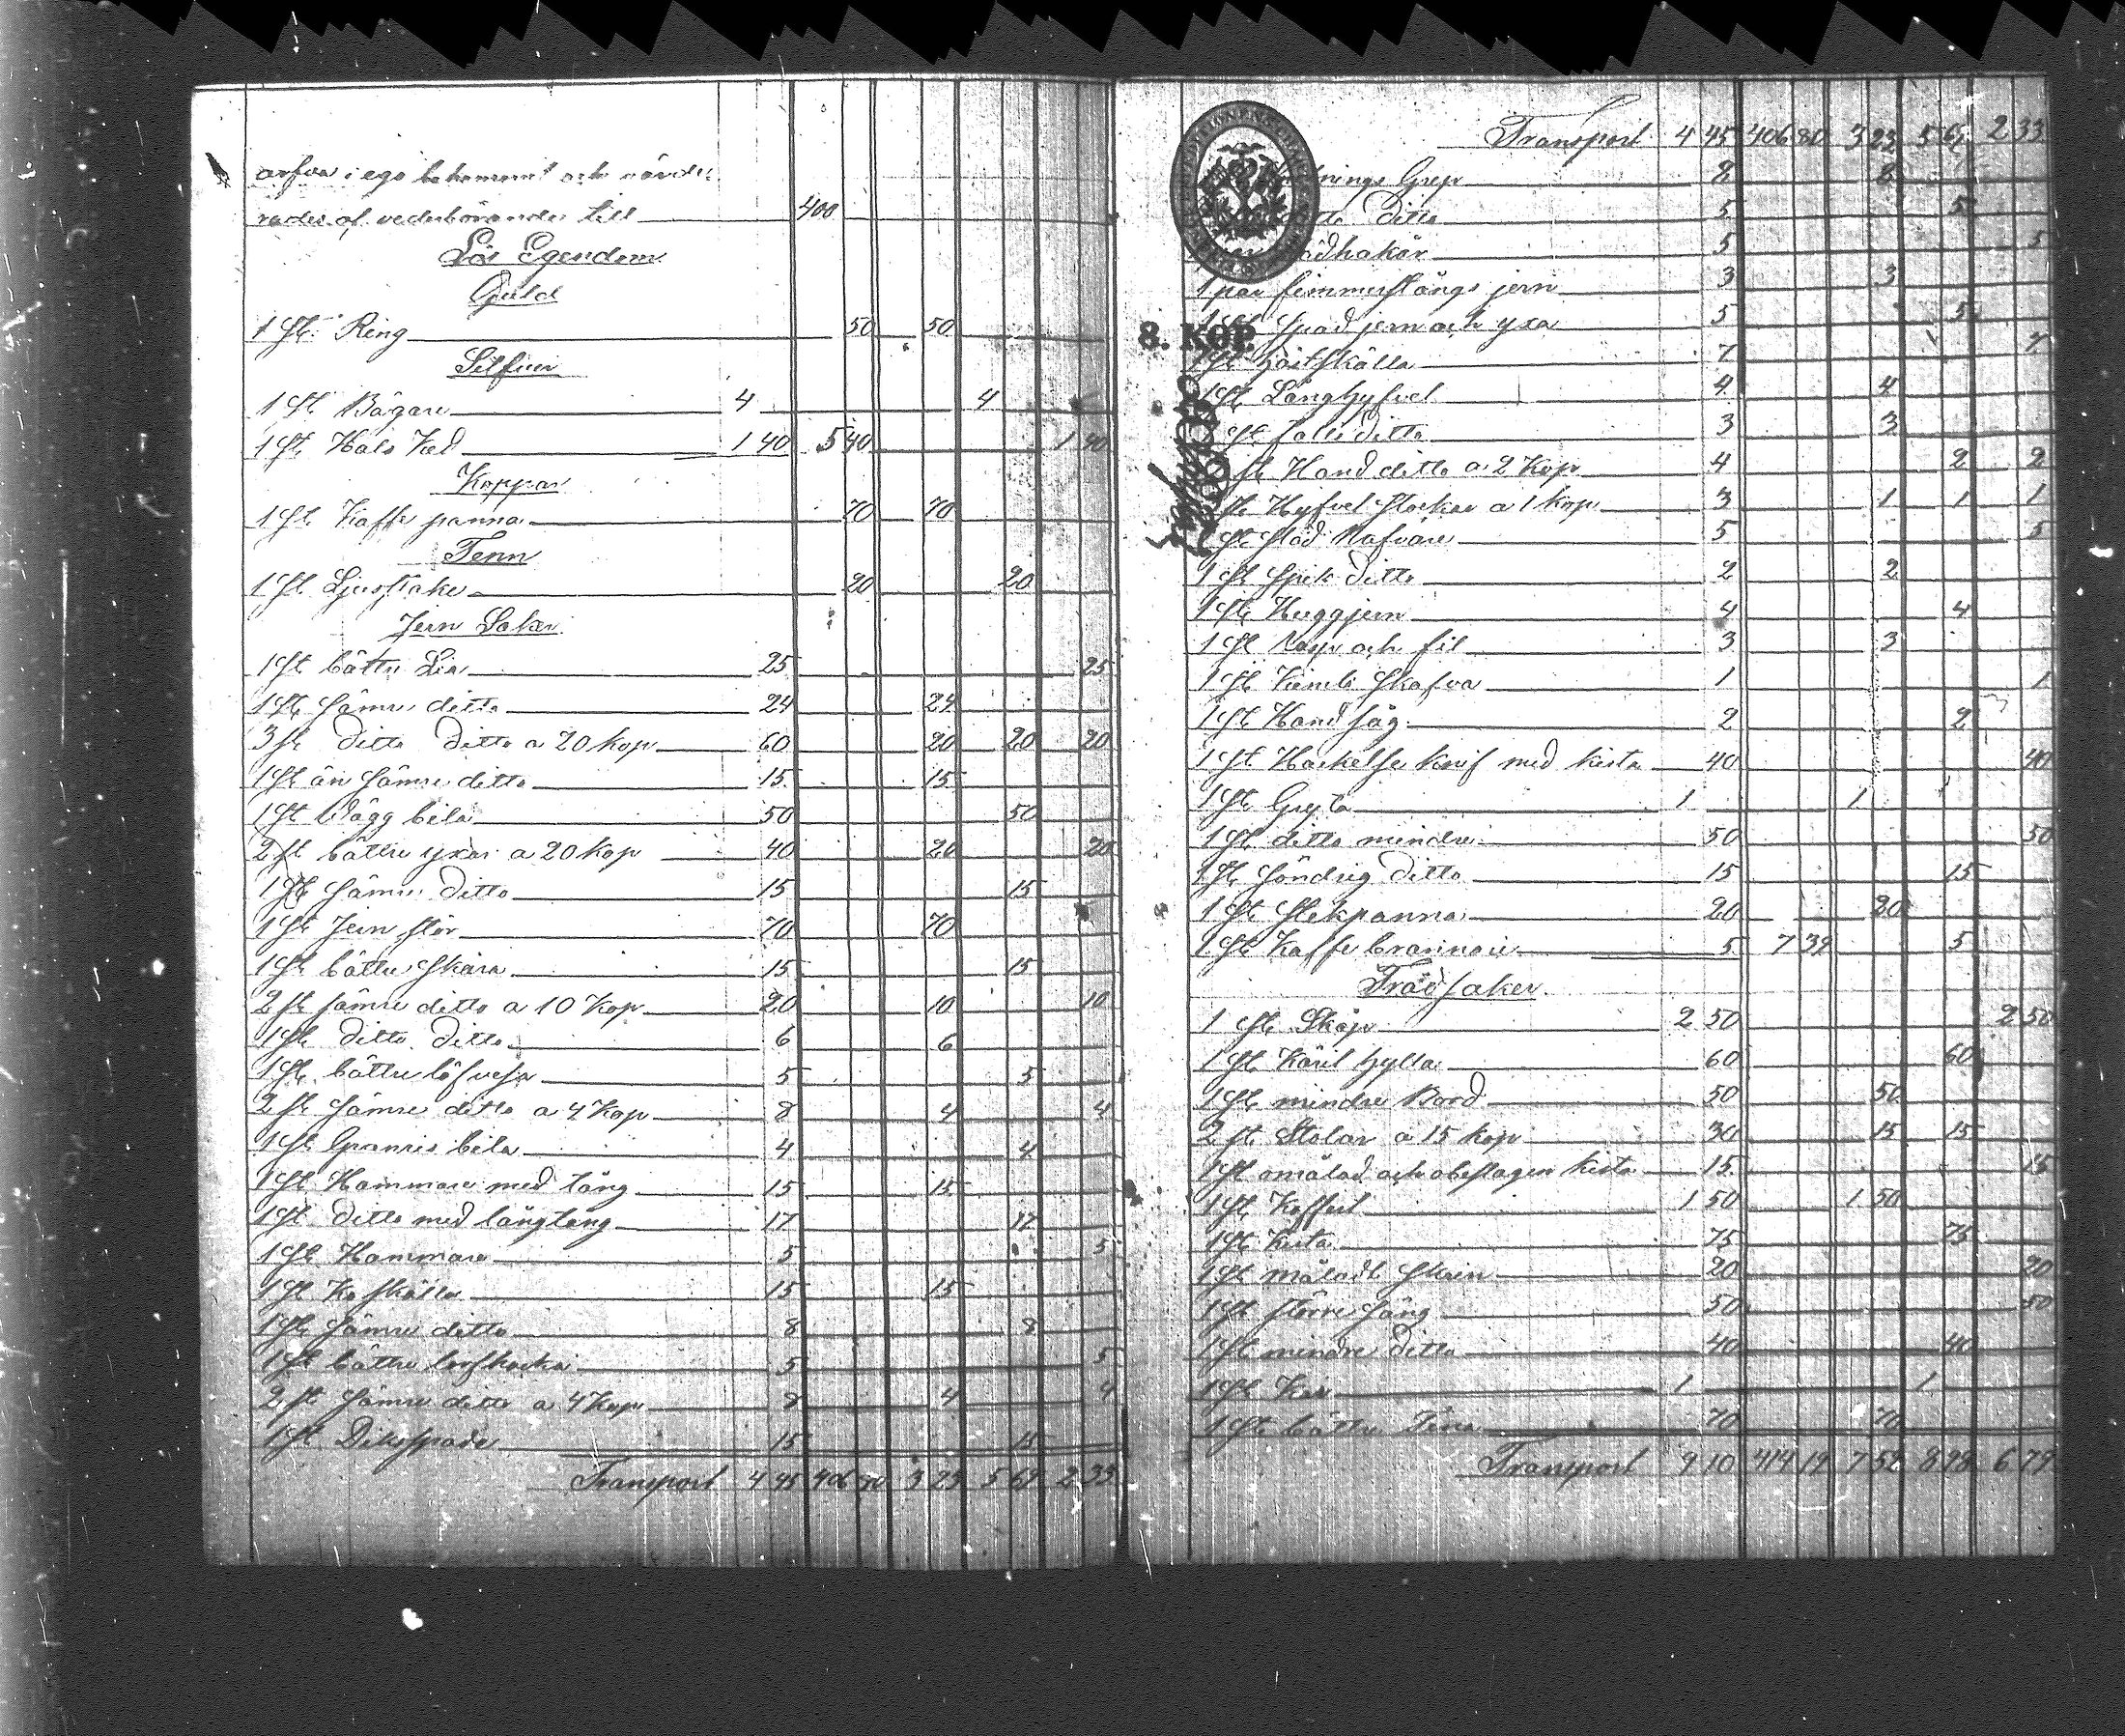 arfva i ego bekommit och värde-
rades af vederbörande till 400
Lös Egendom
Guld
1 st. Ring 50 50
Silfver
1 st Bägare 4 4
1 st Hals Ked 1 40 5 40 1 40
Koppar
1 st Kaffe panna 70 70
Tenn
1 st Ljusstake 20 20
Jern Saker
1 st bättre Lia 25 25
1 st sämre ditto 24 24
3 st ditto ditto a 20 kop 60 20 20 20
1 st än sämre ditto 15 15
1 st Vägg bila 50 50
2 st bättre yxor a 20 kop 40 20 20
1 st sämre ditto 15 15
1 st Jern stör 70 70
1 st bättre skära 15 15
2 st sämre ditto a 10 Kop 20 10 10
1 st ditto ditto 6 6
1 st bättre löfvesa 5 5
2 st sämre ditto a 4 Kop 8 4 4
1 st Granris bila 4 4
1 st Hammare med tång 15 15
1 st ditto med långtång 17 17
1 st Hammare 5 5
1 st Ko skälla 15 15
1 st sämre ditto 8 8
1 st bättre torfhacka 5 5
2 st sämre ditto a 4 Kop 8 4 4
1 st Dikesspade 15 15
Transport 4 45 406 80 3 23 5 69 2 33
Transport 4 45 406 80 3 23 5 69 2 33
nings Grep 8 8
ditto 5 5
5 5
1 par fimmerstångs jern 3 3
8. KOP.
1 st spad jern och yxa 5 5
1 st hästskälla 7 7
1 st Långhyfvel 4 4
st falls ditto 3 3
st Hand ditto a 2 Kop 4 2 2
st Hyfvel stockar a 1 kop 3 1 1 1
1 st stöd Nafvare 5 5
1 st spik ditto 2 2
1 st Huggjern 4 4
1 st Rasp och fil 3 3
1 st Kimb skafva 1 1
1 st Hand såg 2 2
1 st Hackelse knif med kista 40 40
1 st Gryta 1 1
1 st ditto mindre 50 50
1 st söndrig ditto 15 15
1 st stekpanna 20 20
1 st Kaffe brännare 5 7 39 5
Trädsaker
1 st Skåp 2 50 2 50
1 st Käril hylla 60 60
1 st mindre Bord 50 50
2 st Stolar a 15 kop 30 15 15
1 st omålad och obeslagen kista 15 15
1 st Koffert 1 50 1 50
1 st Kista 75 75
1 st måladt skrin 20 20
1 st större säng 50 50
1 st mindre ditto 40 40
1 st Kar 1 1
1 st bättre Tina 70 70
Transport 9 10 414 19 7 52 8 98 6 79